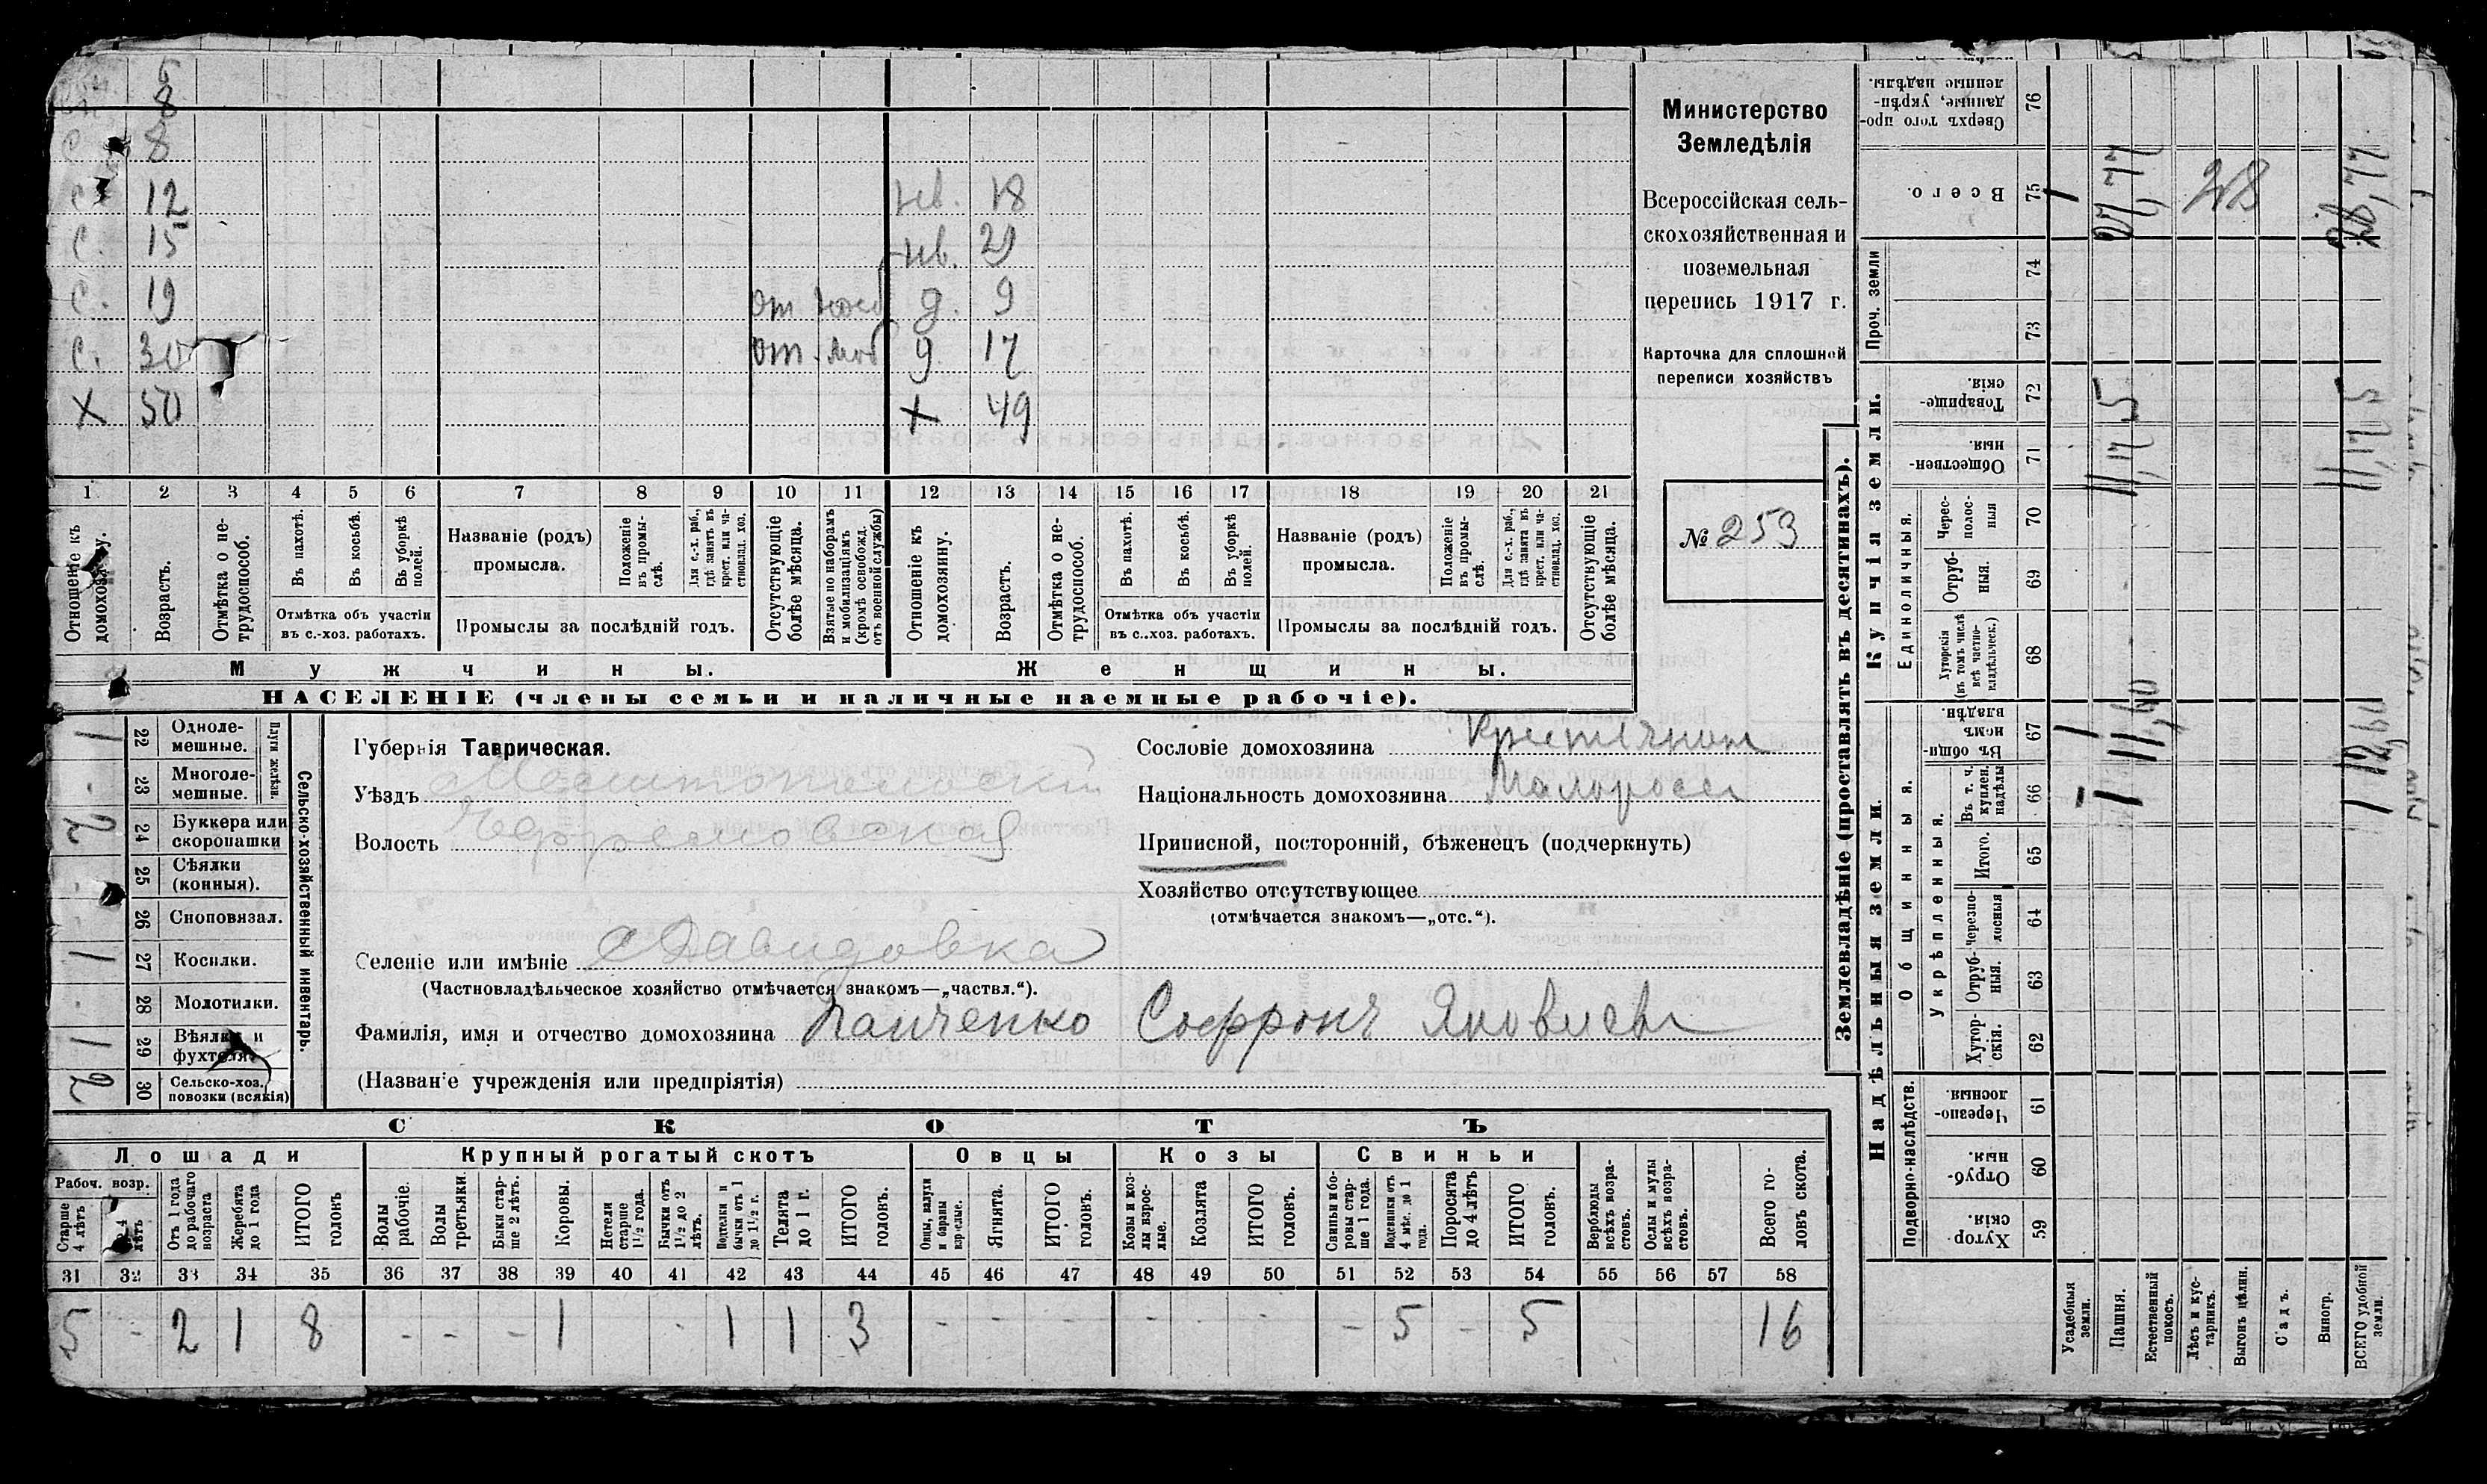 5
8
С. 8
С. 12 нв. 18
С. 15 нв. 21
С. 19 от моб д. 9
С. 30 от. моб д 17
Х 50 Х 49
1 2 3 4 5 6 7 8 9 10 11 12 13 14 15 16 17 18 19 20 21
Отношеніе къ домохозяину.
Возрастъ.
Отмѣтка о нетрудоспособ.
Въ пахотѣ.
Въ косьбѣ.
Въ уборкѣ полей.
Отмѣтка объ участіи
въ с.-хоз. работахъ.
Названіе (родъ)
промысла.
Положеніе въ промыслѣ.
Для с.-х. раб., гдѣ занятъ въ крест. или частновлад. хоз.
Промыслы за послѣдній годъ.
Отсутствующіе болѣе мѣсяца.
Взятые по наборамъ и мобилизаціямъ (кромѣ освобожд. отъ военной службы)
Отношеніе къ домохозяину.
Возрастъ.
Отмѣтка о нетрудоспособ.
Въ пахотѣ.
Въ косьбѣ.
Въ уборкѣ полей.
Отмѣтка объ участіи
въ с..хоз. работахъ.
Названіе (родъ)
промысла.
Положеніе въ промыслѣ.
Для с.-х. раб., гдѣ занята въ крест. или частновлад. хоз.
Промыслы за послѣдній годъ.
Отсутствующіе болѣе мѣсяца.
Мужчины. Женщины.
НАСЕЛЕНІЕ (члены семьи и наличные наемные рабочіе).
Министерство
Земледѣлія
Всероссійская сель-
скохозяйственная и
поземельная
перепись 1917 г.
Карточка для сплошной
переписи хозяйствъ
№ 253
Сельско-хозяйственный инвентарь.
Плуги желѣзн.
1 22 Одноле-
мешные.
- 23 Многоле-
мешные.
2 24 Буккера или
скоропашки
- 25 Сѣялки
(конныя).
26 Сноповязал.
1 27 Косилки.
- 28 Молотилки.
1 29 Вѣялки и
фухтеля.
2 30 Сельско-хоз.
повозки (всякія)
Губернія Таврическая.
Уѣздъ Мелитопольскій
Волость Ефремовская
Селеніе или имѣніе с Давидовка
(Частновладѣльческое хозяйство отмѣчается знакомъ—„частвл.“).
Фамилія, имя и отчество домохозяина Панченко Софронъ Яковлевъ
(Названіе учрежденія или предпріятія)
Сословіе домохозяина
Національность домохозяина Малоросс
Приписной, посторонній, бѣженецъ (подчеркнуть)
Хозяйство отсутствующее
(отмѣчается знакомъ—„отс.“).
СКОТЪ
Лошади Крупный рогатый скотъ Овцы Козы Свиньи
Рабоч. возр.
Старше 4 лѣтъ
Отъ 1 года до рабочаго возраста
Жеребята до 1 года
ИТОГО головъ
Волы рабочіе.
Волы третьяки.
Быки старше 2 лѣтъ.
Коровы.
Нетели старше 1½ года.
Бычки отъ 1½ до 2 лѣтъ.
Подтелки и бычки отъ 1 до 1½ г.
Телята до 1 г.
ИТОГО головъ.
Овцы, валухи и бараны взрослые.
Ягнята.
ИТОГО головъ.
Козы и козлы взрослые.
Козлята
ИТОГО головъ.
Свиньи и боровы старше 1 года.
Подсвинки отъ 4 мѣс. до 1 года.
Поросята до 4 лѣтъ
ИТОГО головъ.
Верблюды всѣхъ возрастовъ.
Ослы и мулы всѣхъ возрастовъ.
Всего головъ скота.
31 32 33 34 35 36 37 38 39 40 41 42 43 44 45 46 47 48 49 50 51 52 53 54 55 56 57 58
5 - 2 1 8 - - - 1 - 1 1 3 - - - - - - - 5 - 5 16
Землевладѣніе (проставлять въ десятинахъ).
Надѣльныя земли. Купчія земли. Проч. земли
Подворно-наслѣдств.
Общинныя.
Укрѣпленныя.
Единоличныя.
Хуторскія 59
Отрубныя. 60
Черезполосныя. 61
Хуторскія. 62
Отрубныя. 63
Черезполосныя 64
Итого. 65
Въ т. ч. куплен. надѣлы 66
Въ общинномъ владѣн. 67
Хуторскія (въ томъ числѣ всѣ частновладѣльческ.) 68
Отрубныя. 69
Чресполосныя 70
Общественныя 71
Товарищескія. 72
73
74
Всего. 75
Сверхъ того проданные, укрѣпленные надѣлы. 76
Усадебныя земли.
Пашня.
Естественный покосъ.
Лѣсъ и кустарникъ.
Выгонъ цѣлин.
Садъ.
Виногр.
ВСЕГО удобной земли.
1 11,60 12,60
11,17 5 11,17 5
1 27,77 28 28,77